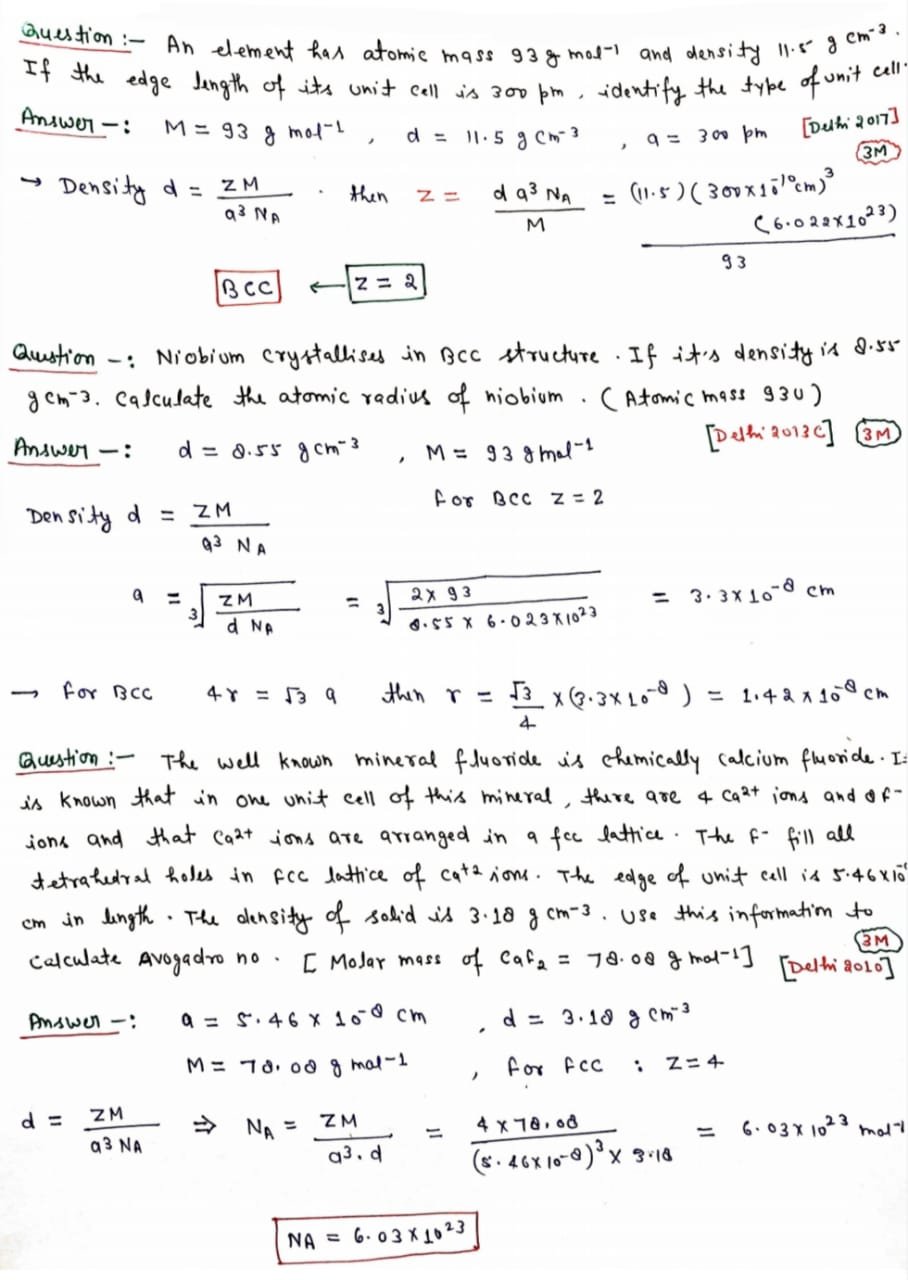 Question :- An element has atomic mass 93 g mol-1 and density 11.5 g cm-3.
If the edge length of its unit cell is 300 pm, identify the type of unit cell.
Answer -: M = 93 g mol-1 , d = 11.5 g cm-3 , a = 300 pm [Delhi 2017]
3M
→ Density d = ZM / a3 NA . then Z = d a3 NA / M = (11.5)(300×10-10cm)3 (6.022×1023) / 93
BCC ← Z = 2
Question -: Niobium crystallises in BCC structure. If it's density is 8.55
g cm-3. Calculate the atomic radius of niobium. (Atomic mass 93U)
Answer -: d = 8.55 g cm-3 , M = 93 g mol-1 [Delhi 2013C] 3M
for BCC Z = 2
Density d = ZM / a3 NA
a = 3√ZM / d NA = 3√2× 93 / 8.55 × 6.023×1023 = 3.3×10-8 cm
→ for BCC 4r = √3 a then r = √3/4 ×(3.3×10-8) = 1.42 × 10-8 cm
Question :- The well known mineral fluoride is chemically calcium fluoride. I
is known that in one unit cell of this mineral, there are 4 Ca2+ ions and 8F-
ions and that Ca2+ ions are arranged in a fcc lattice. The F- fill all
tetrahedral holes in FCC lattice of Ca+2 ions. The edge of unit cell is 5.46×10-8
cm in length. The density of solid is 3.18 g cm-3. Use this information to
Calculate Avogadro no. [ Molar mass of CaF2 = 78.08 g mol-1] [Delhi 2010] 3M
Answer -: a = 5.46 × 10-8 cm , d = 3.18 g cm-3
M = 78.08 g mol-1 , for fcc : Z=4
d = ZM / a3 NA ⇒ NA = ZM / a3.d = 4 × 78.08 / (5.46×10-8)3 × 3.18 = 6.03×1023 mol-1
NA = 6.03×1023